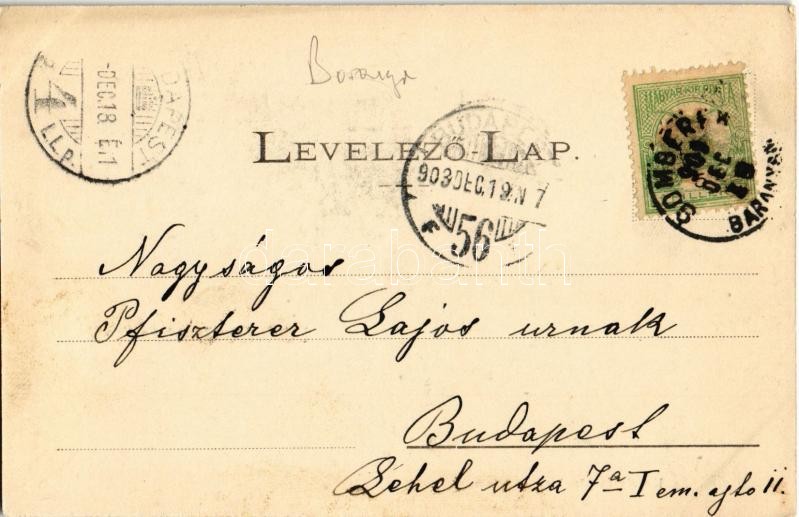 Baranya
LEVELEZŐ-LAP.
DEC.18. É.1
4
I.I.P.
BUDAPEST
903 DEC.19.N 7
56
MAGYAR KIR. POSTA
SOMBEREK
903 DEC
BARANYA M
darabanth
Nagyságos
Pfiszterer Lajos urnak
Budapest
Lehel utza 7a I em. ajto 11.